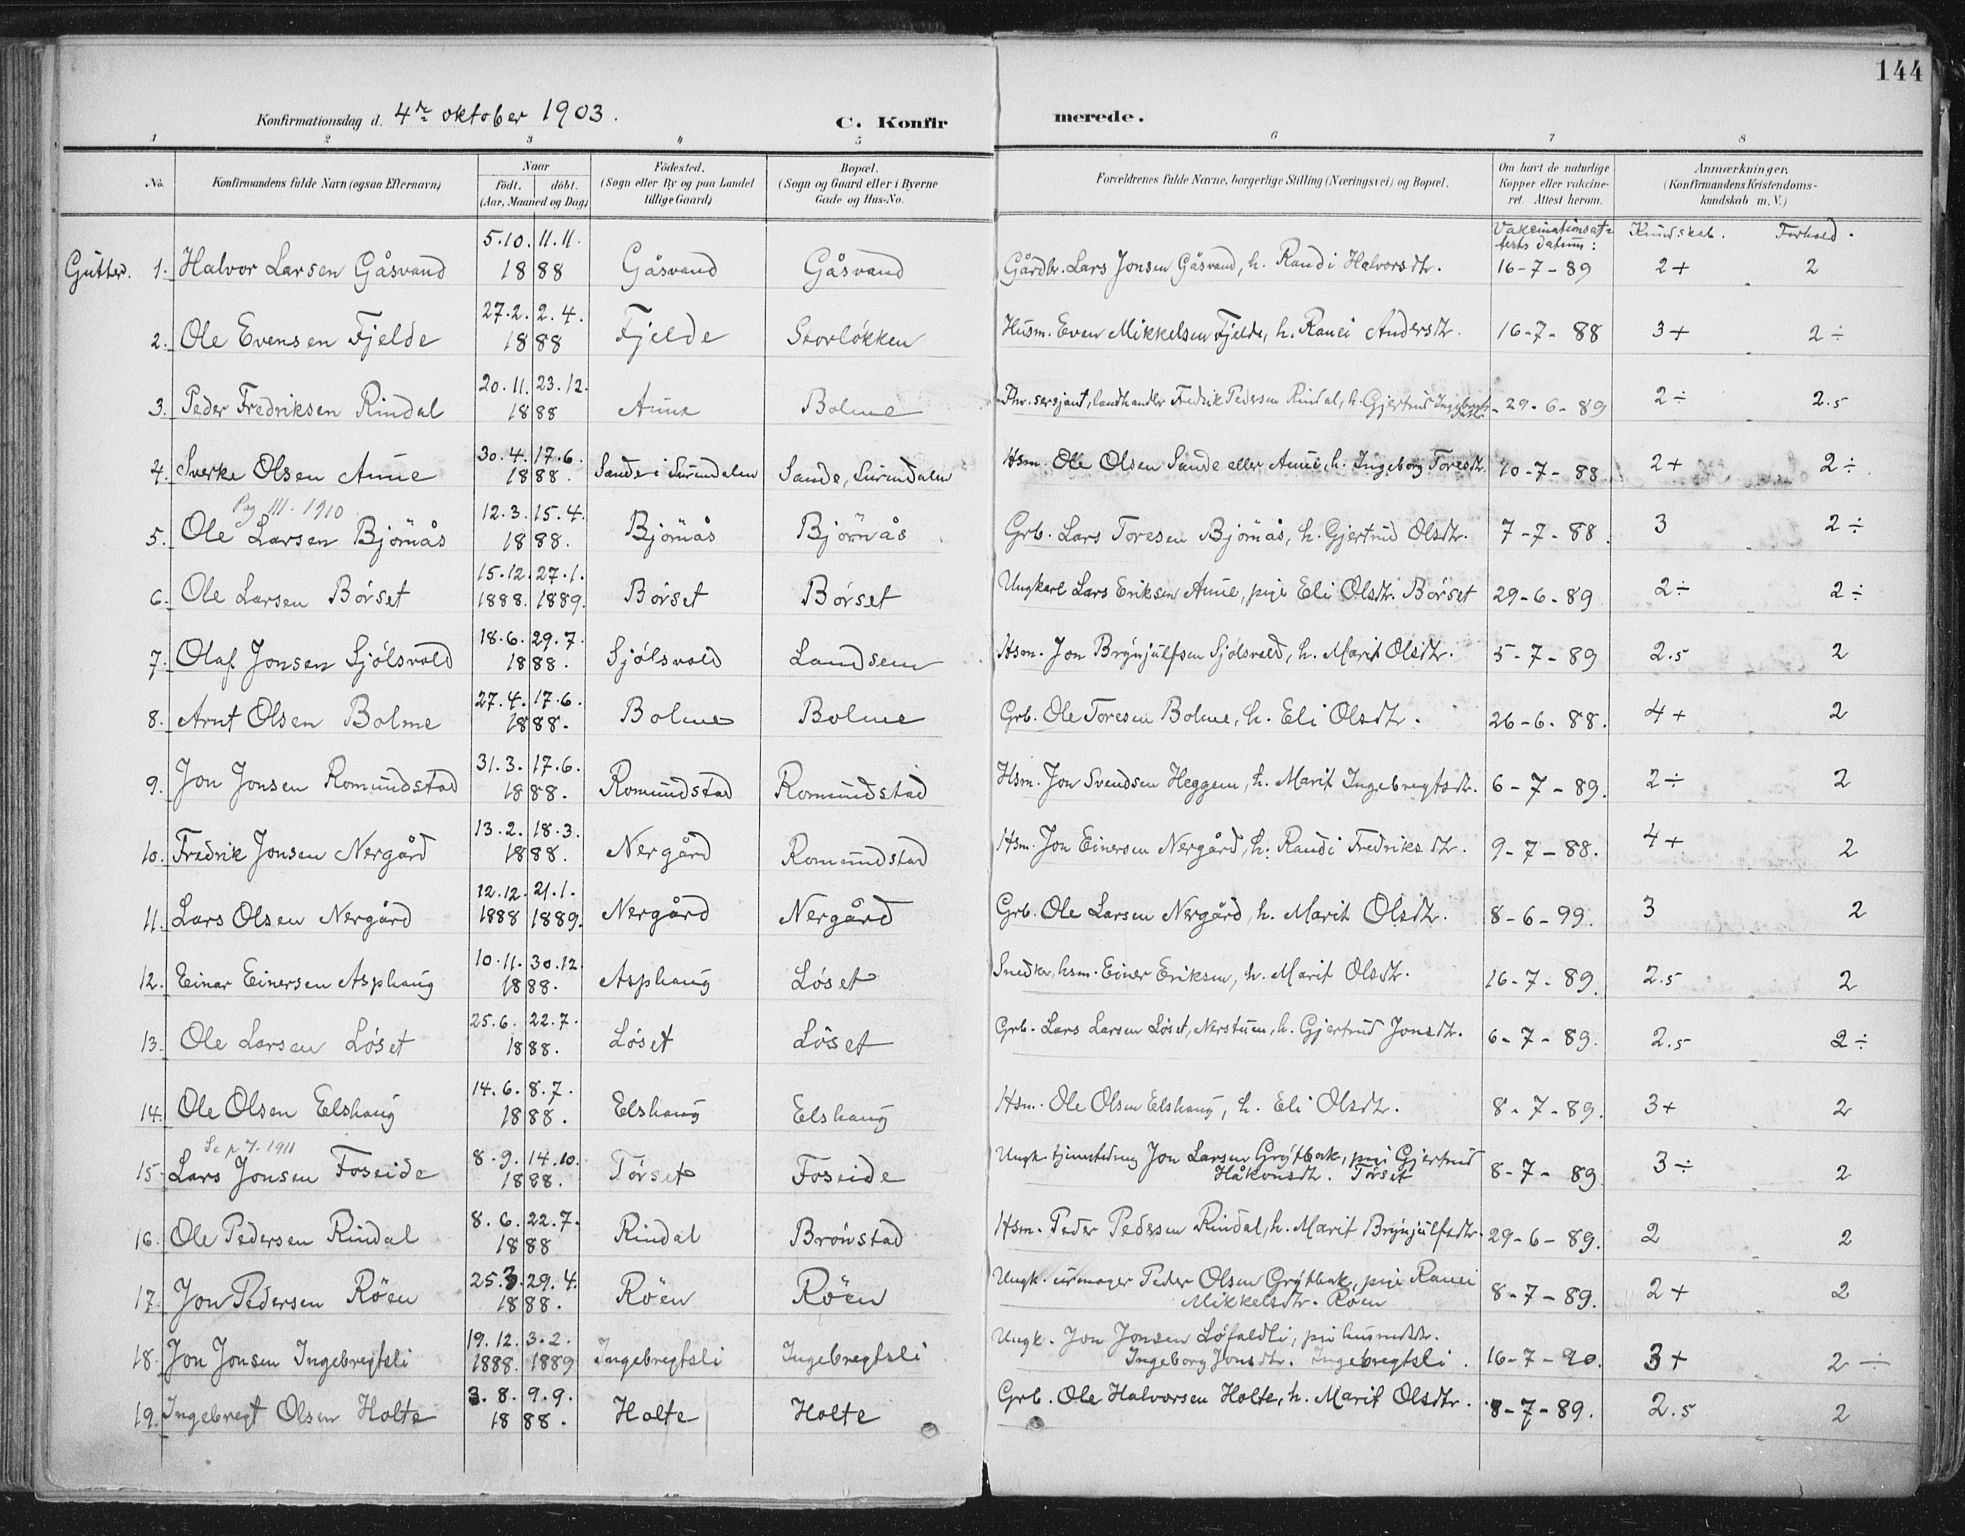 144
Konfirmationsdag d. 4de oktober 1903.
C. Konfirmerede.
1 2 3 4 5 6 7 8
No. Konfirmandens fulde Navn (ogsaa Efternavn) Naar födt. döbt. (Aar, Maaned og Dag) Födested. (Sogn eller By og paa Landet tillige Gaard) Bopæl. (Sogn og Gaard eller i Byerne Gade og Hus-No. Forældrenes fulde Navne, borgerlige Stilling (Næringsvei) og Bopæl. Om havt de naturlige Kopper eller vakcineret. Attest herom. Anmærkninger. (Konfirmandens Kristendomskundskab m. V.)
Vakcinationsattests datum: Kundskab. Forhold.
Gutter. 1. Halvor Larsen Gåsvand 5.10. 11.11. 1888 Gåsvand Gåsvand Gårdbr. Lars Jonsen Gåsvand, h. Randi Halvorsdtr. 16-7-89 2+ 2
2. Ole Evensen Fjelde 27.2. 2.4. 1888 Fjelde Storløkken Husm. Even Mikkelsen Fjelde, h. Ranei Andersdtr. 16-7-88 3+ 2÷
3. Peder Fredriksen Rindal 20.11. 23.12. 1888 Aune Bolme sersjant, landhandler Fredrik Pedersen Rindal, h. Gjertrud 29-6-89 2÷ 2.5
4. Sverke Olsen Aune 30.4. 17.6. 1888. Sande i Surendalen Sande, Surendalen Hsm. Ole Olsen Sande eller Aune, h. Ingeborg Toresdtr. 10-7-88 2+ 2÷
Pag 111. 1910
5. Ole Larsen Bjørnås 12.3. 15.4. 1888. Bjørnås Bjørnås Grb. Lars Toresen Bjørnås, h. Gjertrud Olsdtr. 7-7-88. 3 2÷
6. Ole Larsen Børset 15.12. 27.1. 1888. 1889. Børset Børset Ungkarl Lars Eriksen Aune, pige Eli Olsdtr. Børset 29-6-89 2÷ 2÷
7. Olaf Jonsen Sjølsvold 18.6. 29.7. 1888. Sjølsvold Landsem Hsm. Jon Brynjulfsen Sjølsvold, h. Marit Olsdtr. 5-7-89 2.5 2
8. Arnt Olsen Bolme 27.4. 17.6. 1888. Bolme Bolme Grb. Ole Toresen Bolme, h. Eli Olsdtr. 26-6-88. 4+ 2
9. Jon Jonsen Romundstad 31.3. 17.6. 1888. Romundstad Romundstad Hsm. Jon Svendsen Heggem, h. Marit Ingebregtsdtr. 6-7-89. 2÷ 2
10. Fredrik Jonsen Nergård 13.2. 18.3. 1888. Nergård Romundstad Hsm. Jon Einersen Nergård, h. Randi Fredriksdtr. 9-7-88. 4+ 2
11. Lars Olsen Nergård 12.12. 21.1. 1888 1889. Nergård Nergård Grb. Ole Larsen Nergård, h. Marit Olsdtr. 8-6-99. 3 2
12. Einar Einersen Asphaug 10.11. 30.12. 1888. Asphaug Løset Snedker, hsm. Einer Eriksen, h. Marit Olsdtr. 16-7-89. 2.5 2
13. Ole Larsen Løset 25.6. 22.7. 1888. Løset Løset Grb. Lars Larsen Løset, Nerstuen, h. Gjertrud Jonsdtr. 6-7-89. 2.5 2÷
14. Ole Olsen Elshaug 14.6. 8.7. 1888. Elshaug Elshaug Hsm. Ole Olsen Elshaug, h. Eli Olsdtr. 8-7-89. 3+ 2
Se p 7. 1911
15 Lars Jonsen Foseide 8.9. 14.10. 1888. Tørset Foseide Ungk. tjenestedreng Jon Larsen Grytbak, pige Gjertrud Håkonsdtr. Tørset 8-7-89. 3÷ 2
16. Ole Pedersen Rindal 8.6. 22.7. 1888 Rindal Brønstad Hsm. Peder Pedersen Rindal, h. Marit Brynjulfsdtr. 29-6-89. 2 2
17. Jon Pedersen Røen 25.3. 29.4. 1888. Røen Røen Ungk. urmager Peder Olsen Grytbak, pige Ranei Mikkelsdtr. Røen 8-7-89. 2+ 2
18. Jon Jonsen Ingebregtsli 19.12. 3.2. 1888. 1889 Ingebregtsli Ingebregtsli Ungk. Jon Jonsen Løfaldli, pige husmdtr. Ingeborg Jonsdtr. Ingebregtsli. 16-7-90. 3+ 2÷
19. Ingebregt Olsen Holte 3.8. 9.9. 1888. Holte Holte Grb. Ole Halvorsen Holte, h. Marit Olsdtr. 8-7-89. 2.5 2